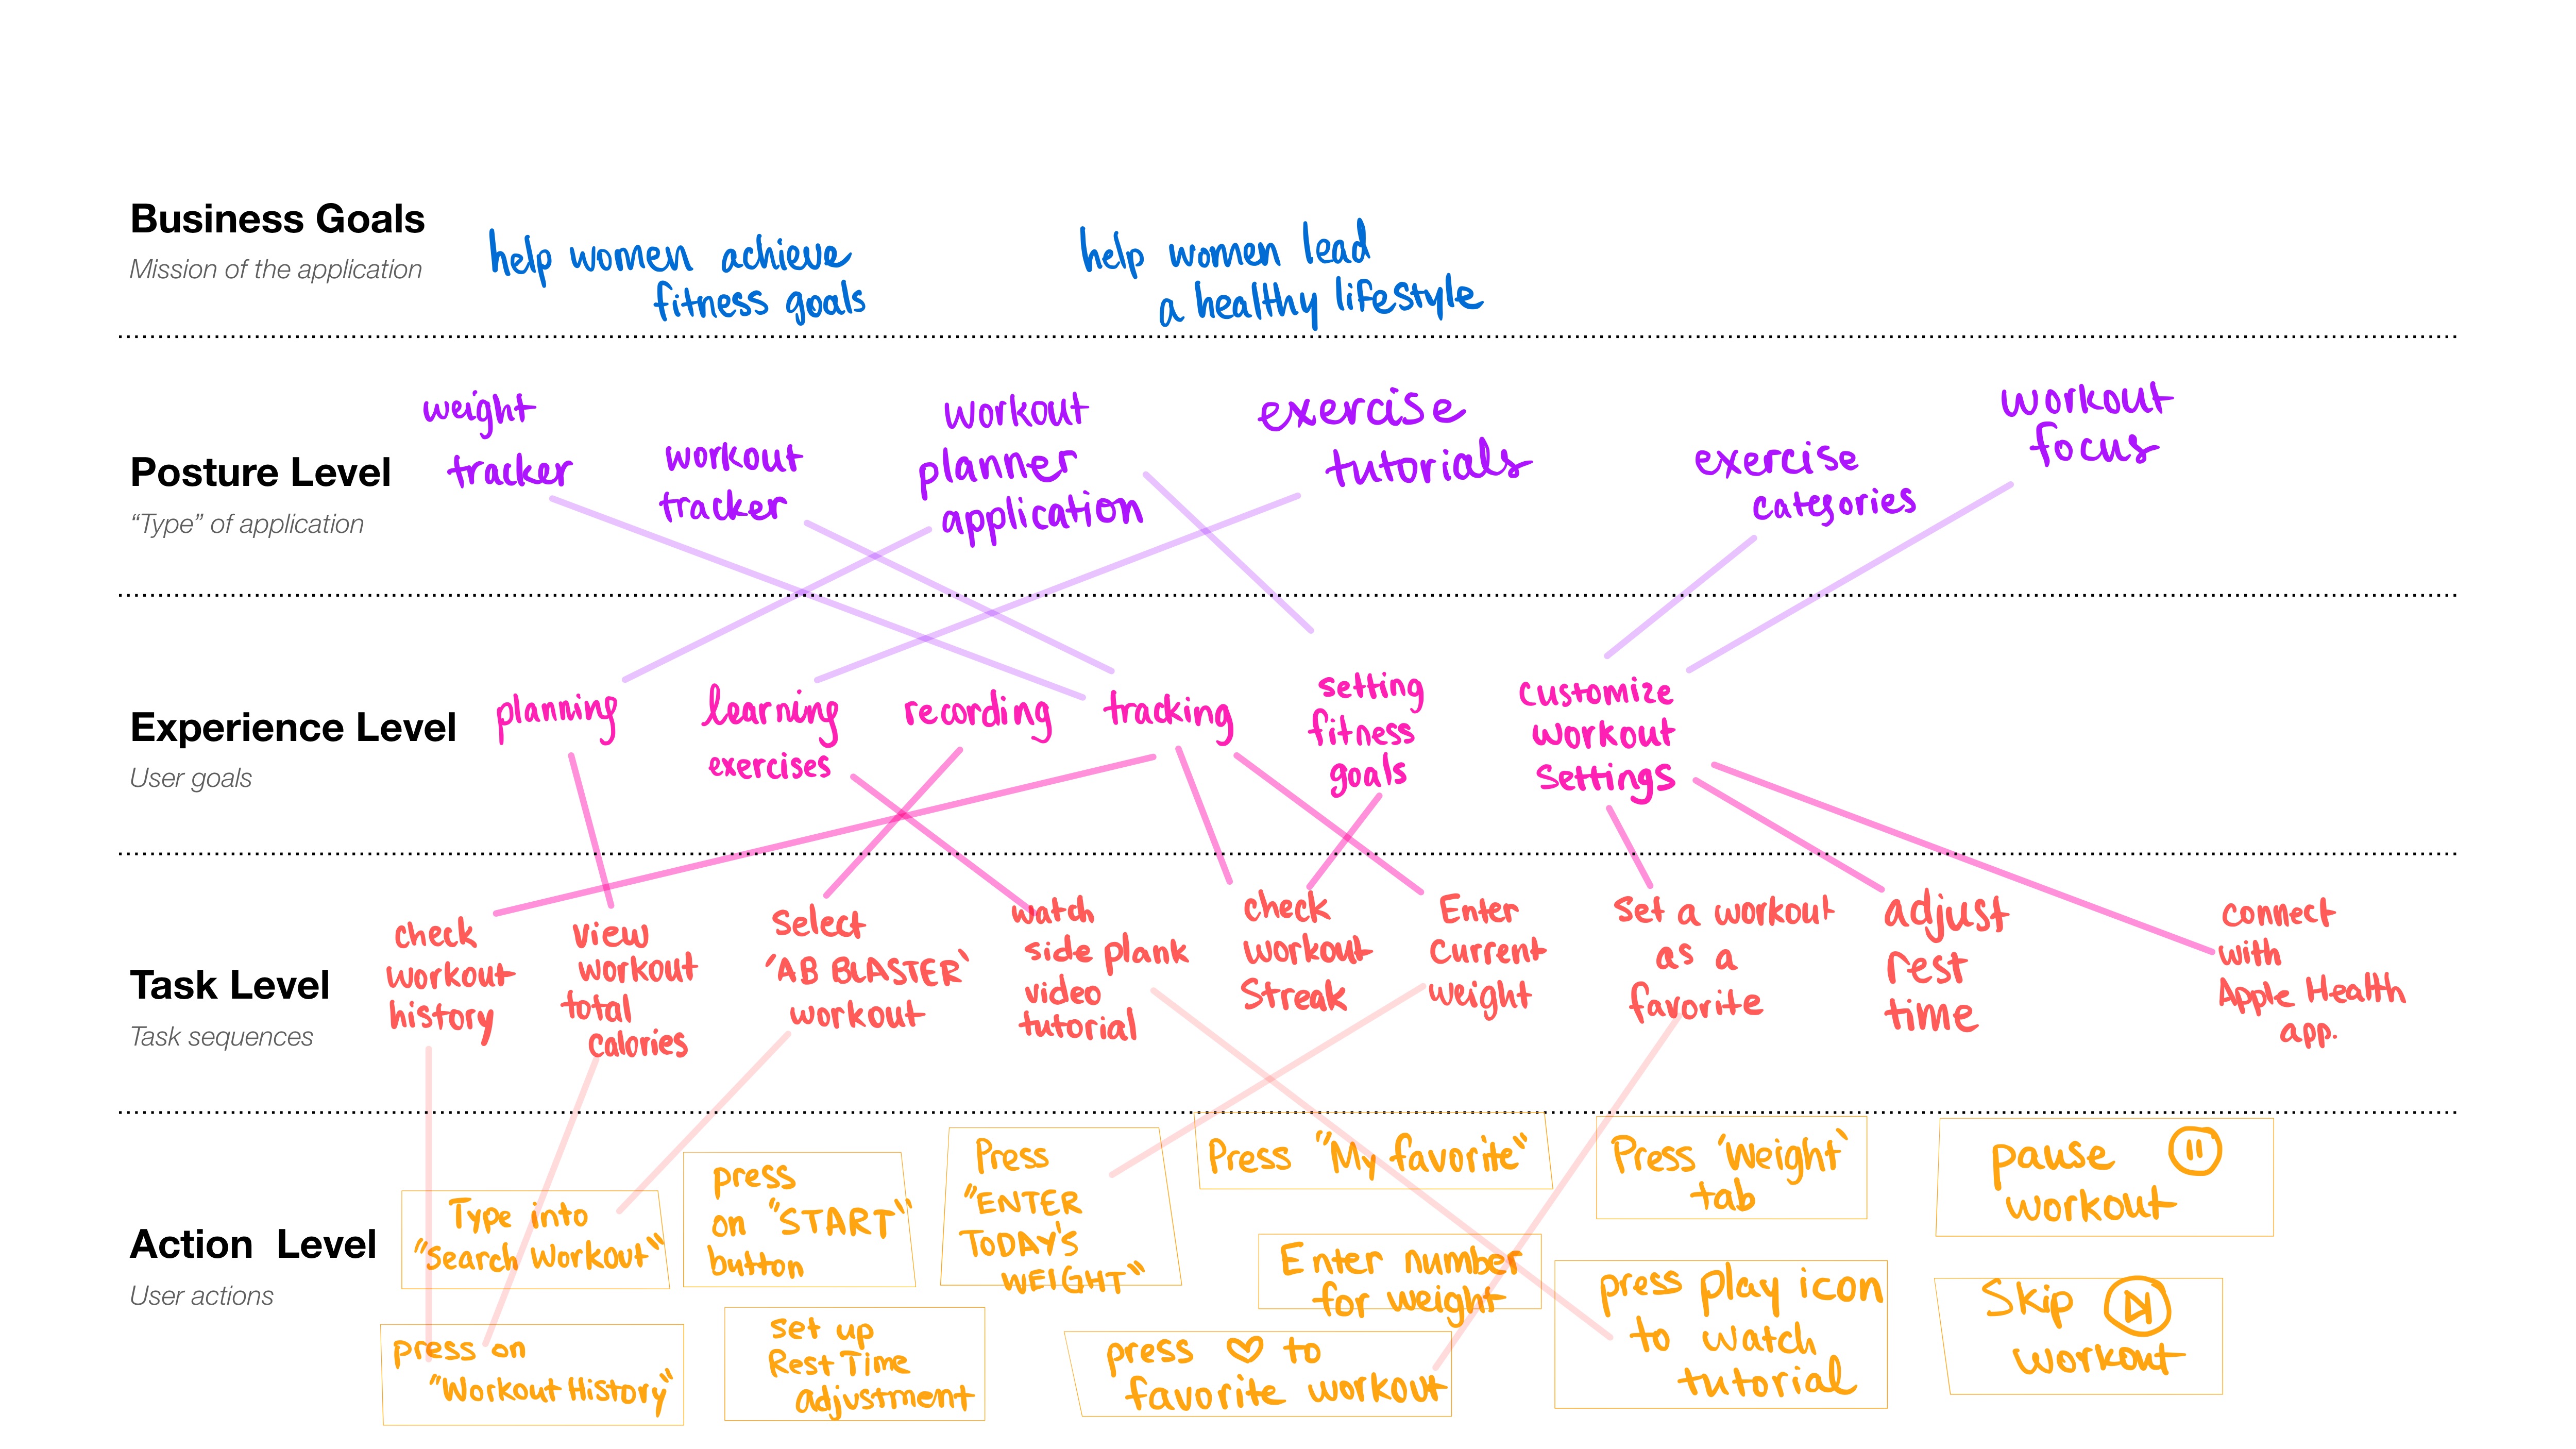 Business Goals
Mission of the application
help women achieve
fitness goals
help women lead
a healthy lifestyle
Posture Level
“Type” of application
weight
tracker
workout
tracker
workout
planner
application
exercise
tutorials
exercise
categories
workout
focus
Experience Level
User goals
planning
learning
exercises
recording
tracking
setting
fitness
goals
customize
workout
settings
Task Level
Task sequences
check
workout
history
view
workout
total
calories
Select
'AB BLASTER'
workout
watch
side plank
video
tutorial
check
workout
Streak
Enter
current
weight
Set a workout
as a
favorite
adjust
rest
time
connect
with
Apple Health
app.
Action Level
User actions
Type into
"Search Workout"
press on
"Workout History"
press
on "START"
button
set up
Rest Time
adjustment
Press
"ENTER
TODAY'S
WEIGHT"
Press "My favorite"
Enter number
for weight
press ♡ to
favorite workout
Press 'Weight'
tab
press play icon
to watch
tutorial
pause
workout
Skip
workout